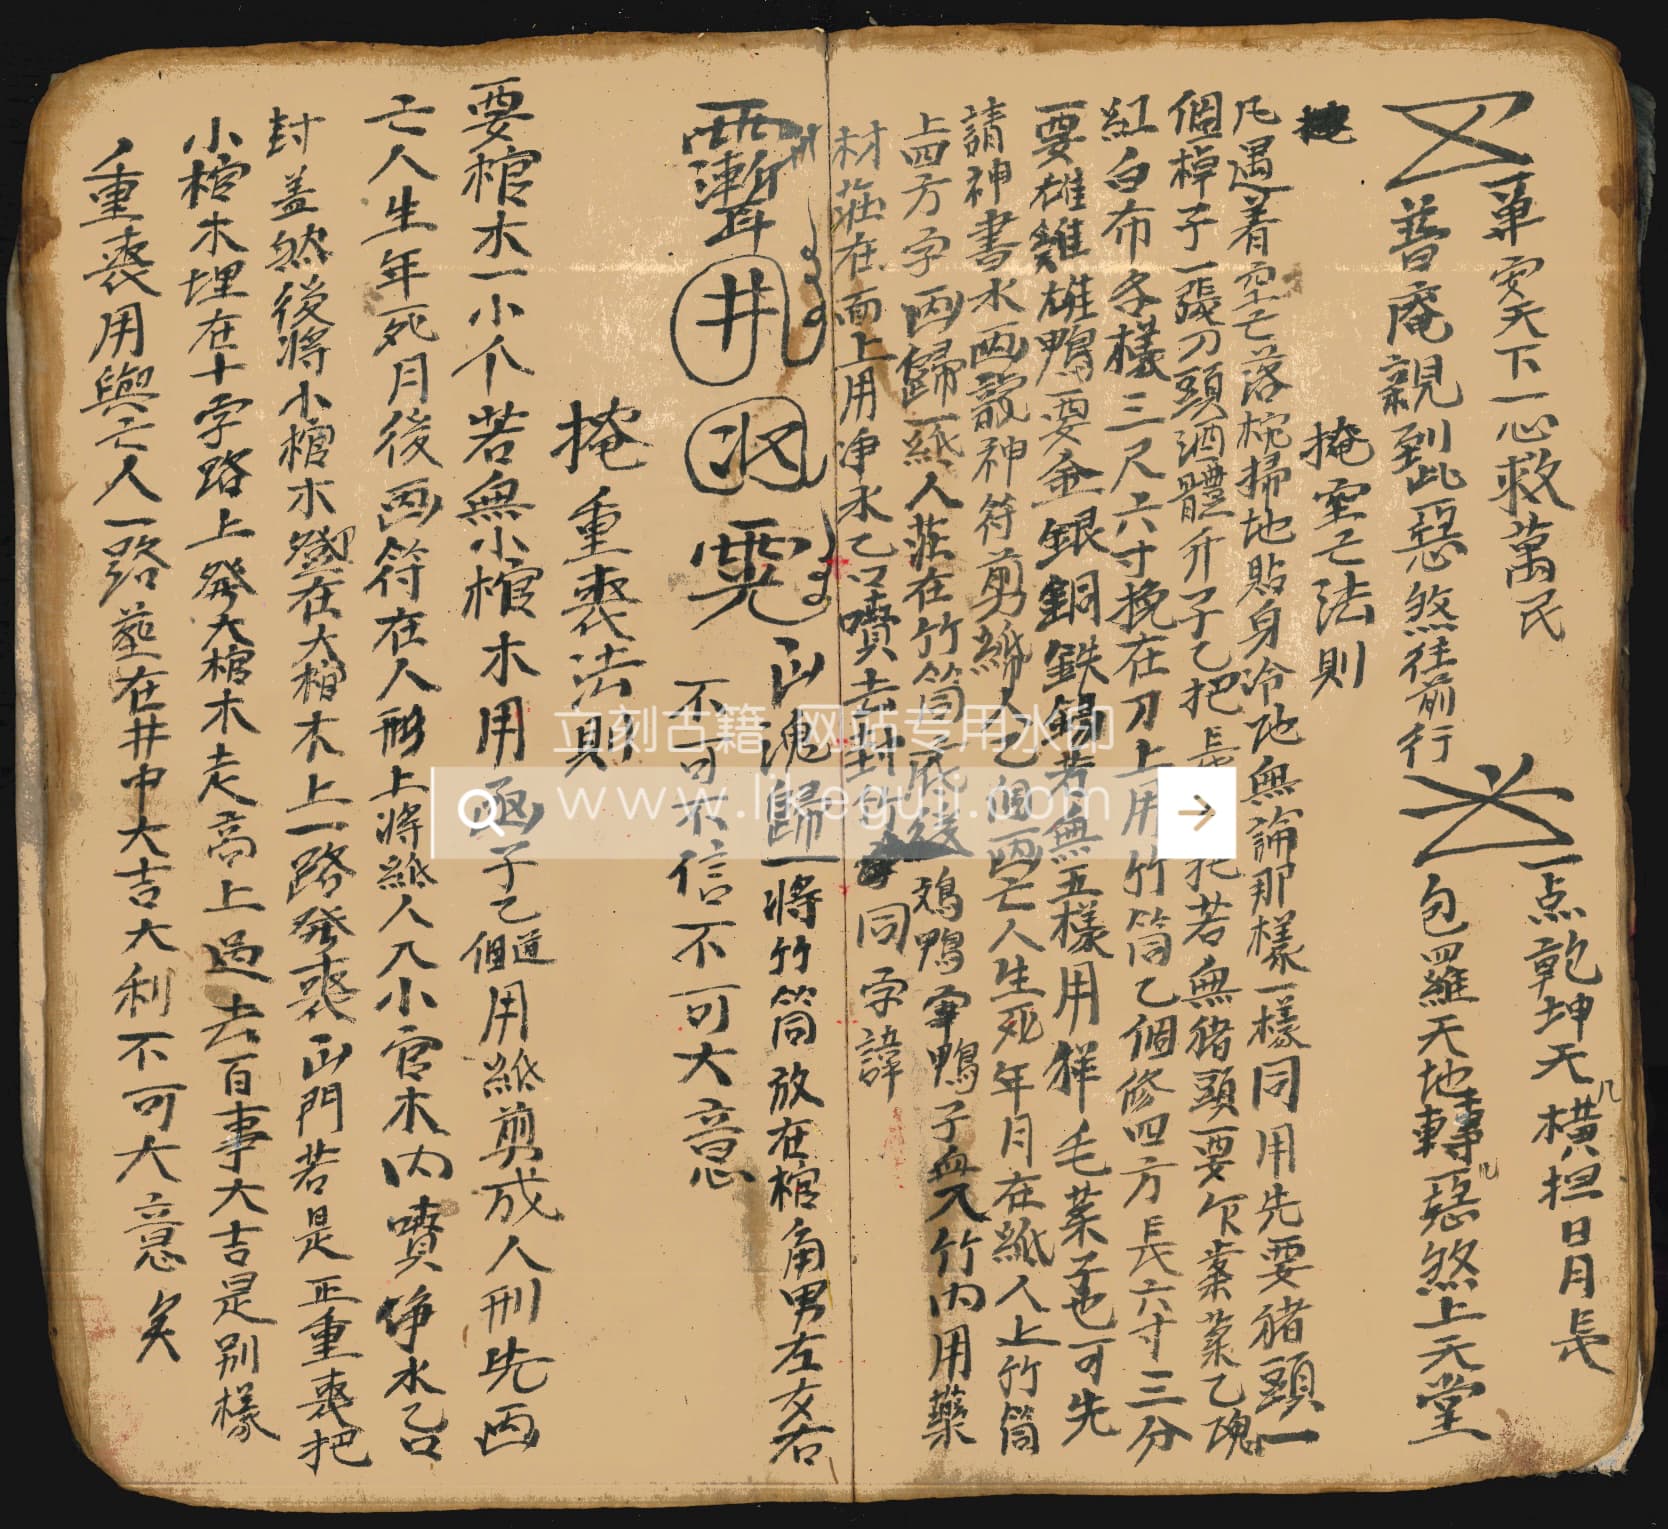 一筆安天下一心救萬民
一点乾坤天横担日月長
普庵親到此惡煞往前行
包羅天地轉惡煞上天堂
掩空亡法則
凡遇着空亡落枕掃地貼身冷地無論那様一樣同用先要猪頭一
個棹子一張刀頭酒醴斤子乙把長把若無猪頭要乍菜乙塊
紅白布各樣三尺六寸挽在刀上用竹筒乙個修四方長六寸三分
要雄雞雄鴨要金銀銅鉄錫若無五樣用羊毛菜子也可先
請神書水画設神符剪紙人乙個画亡人生死年月在紙人上竹筒
上四方字画歸一紙人莊在竹筒底鷄鴨雞鴨子血入竹內用藥
材莊在面上用净水乙口噴去封竹同字諱
井
山魂歸一將竹筒放在棺角男左女右
不可不信不可大意
掩重喪法則
要棺木一小个若無小棺木用函子乙個道用紙剪成人刑先画
亡人生年死月後画符在人形上將紙人入小官木內噴净水乙口
封盖然後將小棺木蹬在大棺木上一路發喪山門若是正重喪把
小棺木埋在十字路上發大棺木走高上過去百事大吉是别樣
重喪用與亡人一路塟在井中大吉大利不可大意矣
立刻古籍 网站专用水印
www.likeguji.com